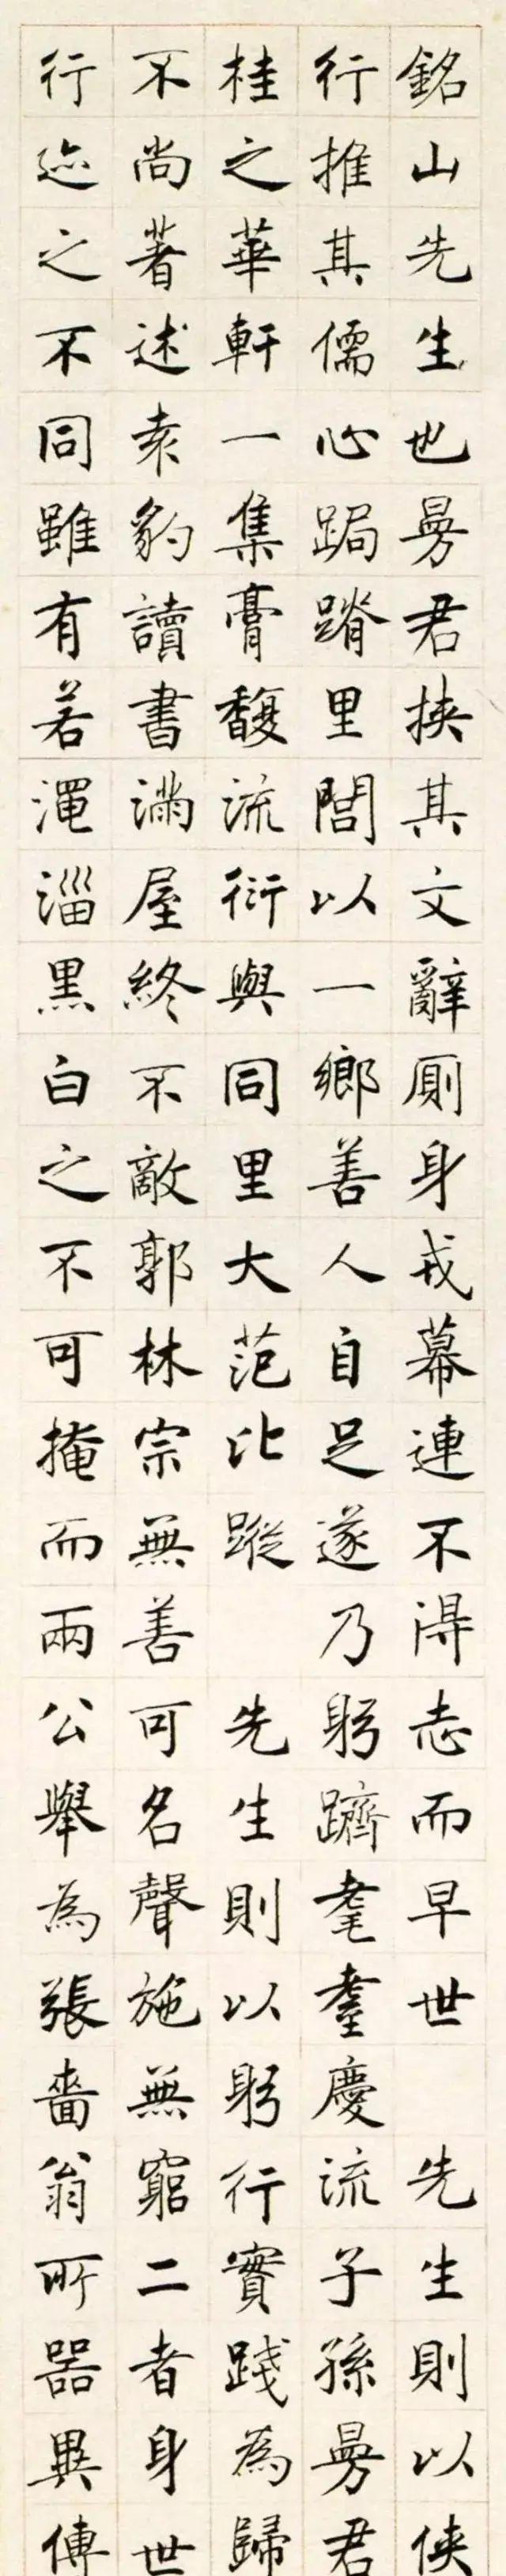 銘山先生也曼君挾其文辭厠身戎幕連不得志而早世 先生則以俠
行推其儒心跼蹐里閭以一鄉善人自足遂乃躬躋耄耋慶流子孫曼君
桂之華軒一集膏馥流衍與同里大范比蹤 先生則以躬行實踐為歸
不尚著述袁豹讀書滿屋終不敵郭林宗無善可名聲施無窮二者身世
行迹之不同雖有若澠淄黑白之不可掩而兩公舉為張嗇翁所器異傳